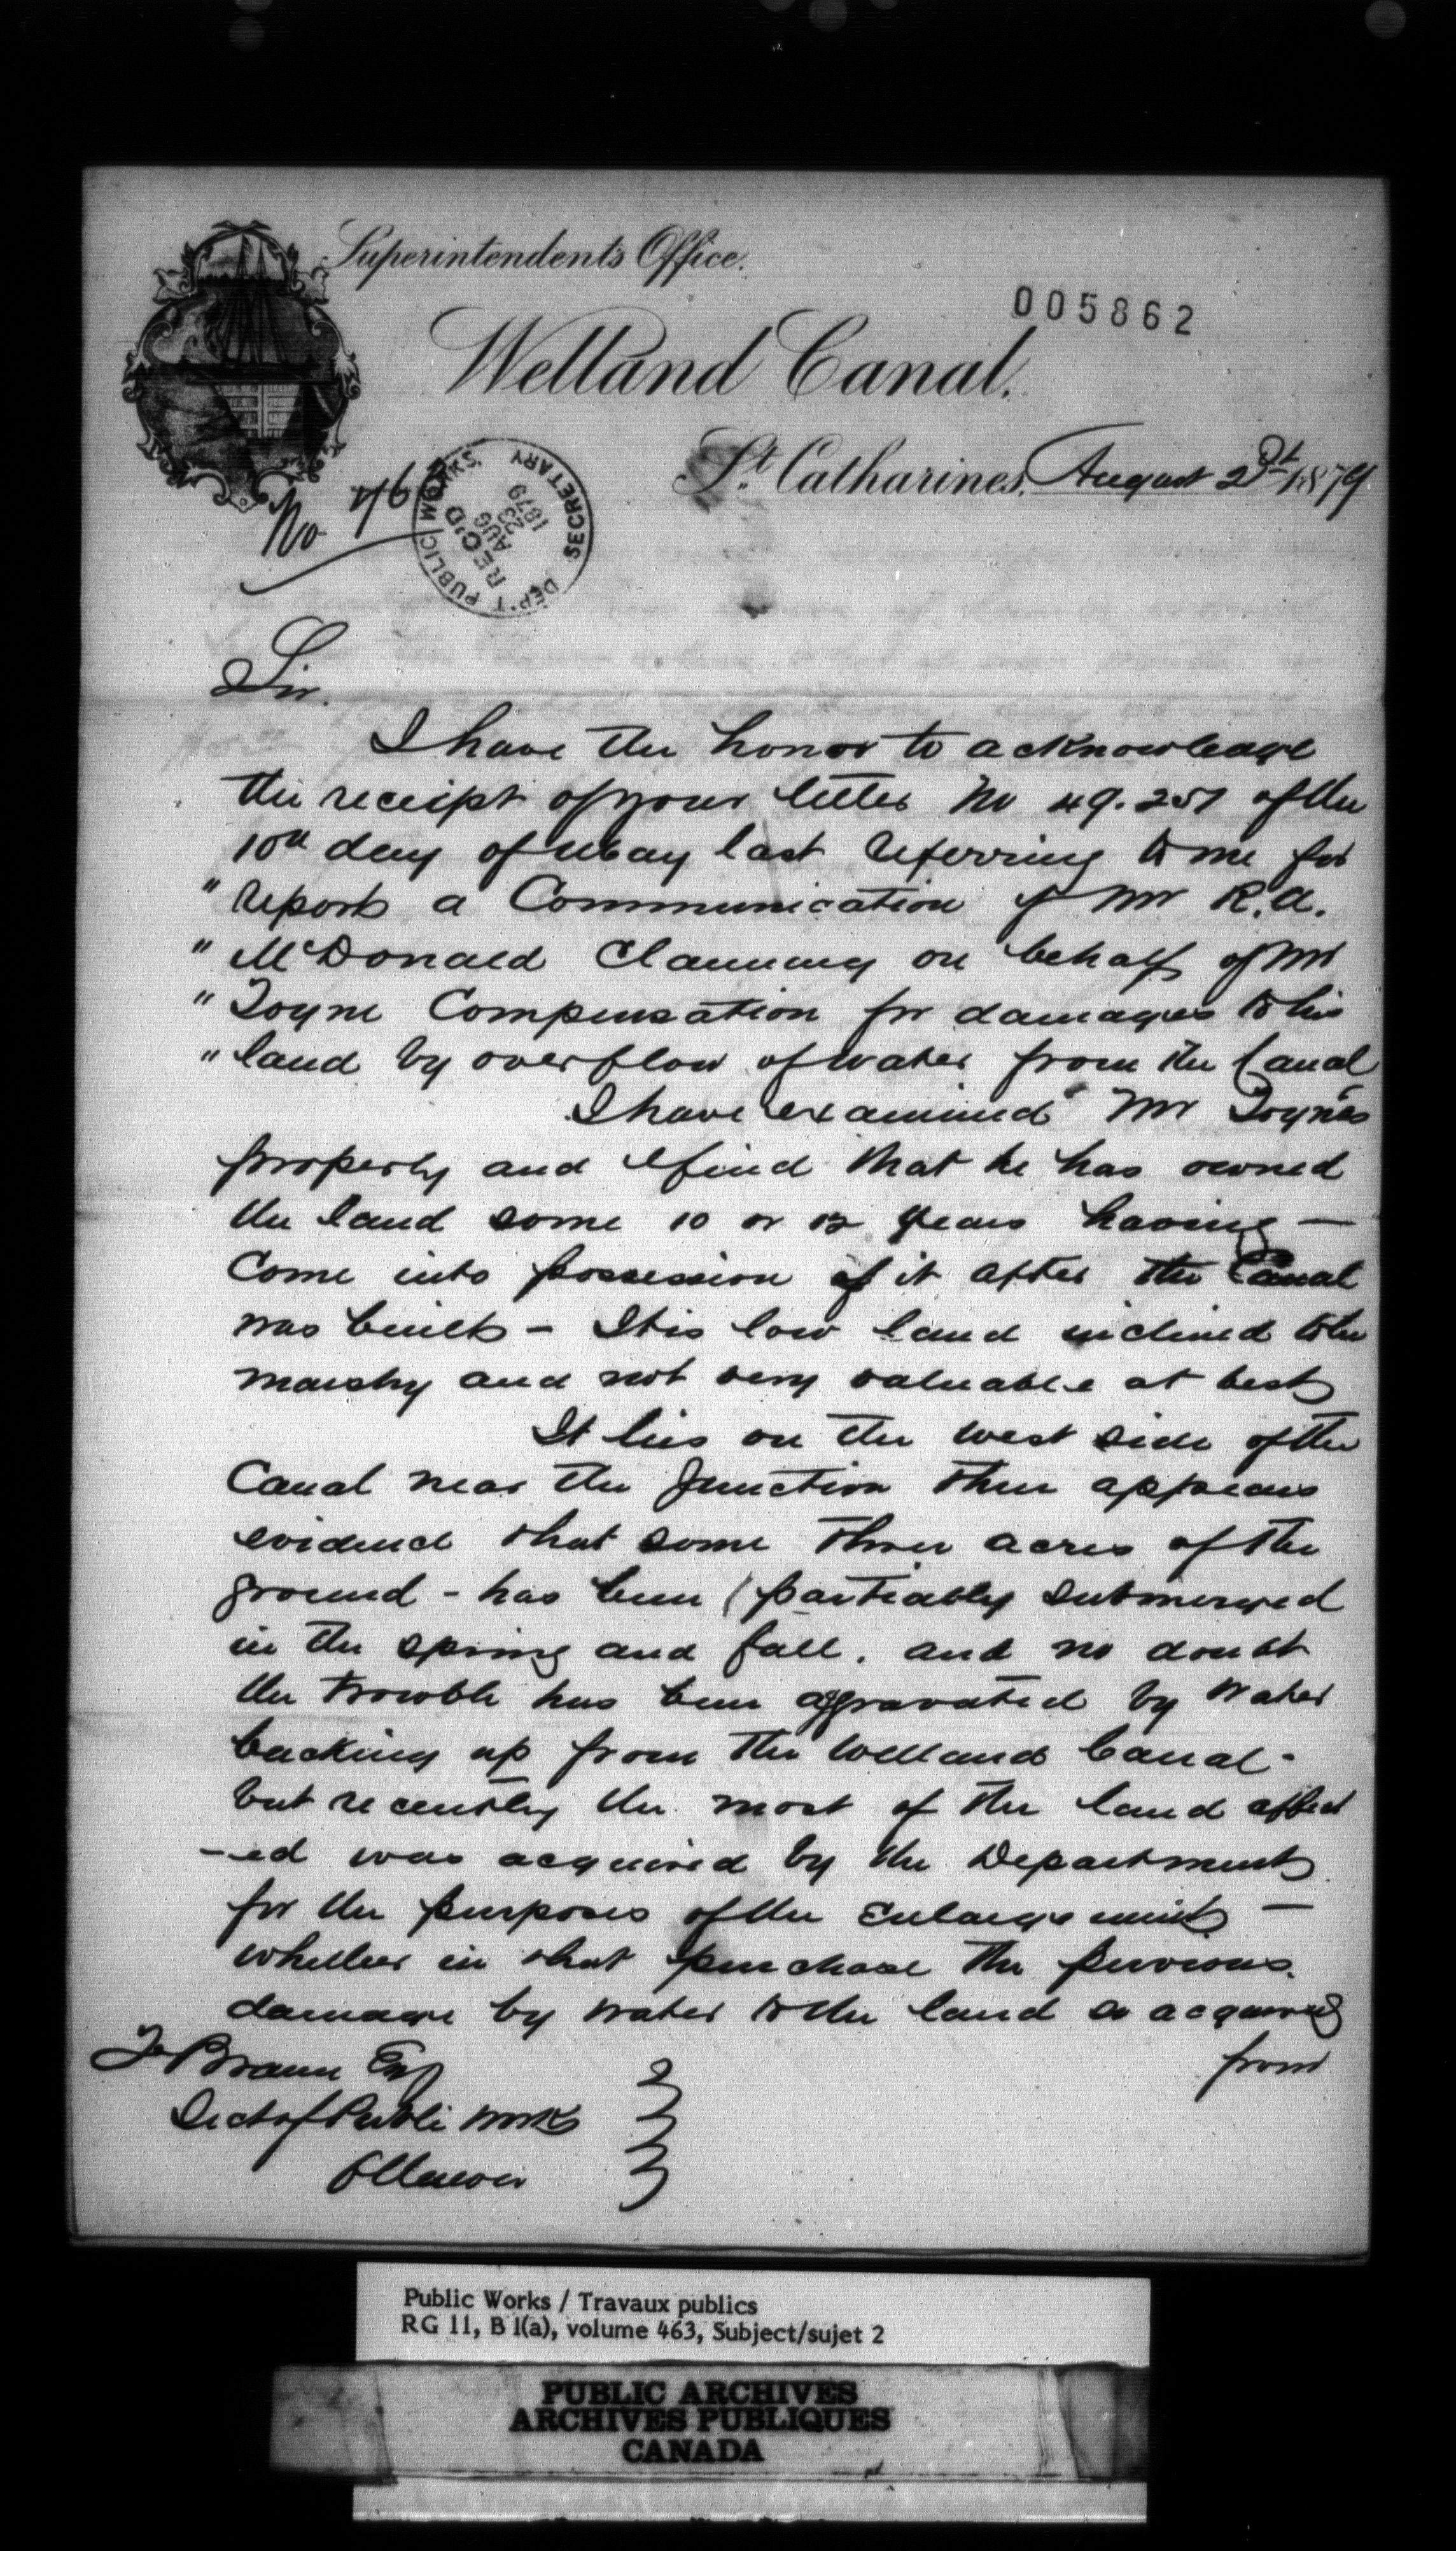 Superintendent's Office.
005862
Welland Canal.
St. Catharines, August 1879
No
DEP'T PUBLIC WORKS. SECRETARY
REC'D
AUG
23
1879
Sir.
I have the honor to acknowledge
the receipt of your letter No 49.251 of the
10th day of May last referring to me for
" report a Communication of Mr R.A.
" McDonald Claiming on behalf of Mr
" Toyne Compensation for damages to his
" land by overflow of water from the Canal
I have examined Mr Toyne's
property and I find that he has owned
the land some 10 or 12 years having —
Come into possession of it after the Canal
was built – It is low land inclined to be
marshy and not very valuable at best
It lies on the west side of the
Canal near the Junction there appears
evidence that some three acres of the
ground – has been partially submerged
in the spring and fall. and no doubt
the trouble has been aggravated by water
backing up from the Welland Canal -
but recently the most of the land affect
-ed was acquired by the Department
for the purposes of the Enlargement —
whether in that purchase the previous
damage by water to the land so acquired
from
F Braun Esq
Secty of Public Works
Ottawa
Public Works / Travaux publics
RG 11, B 1(a), volume 463, Subject/sujet 2
PUBLIC ARCHIVES
ARCHIVES PUBLIQUES
CANADA